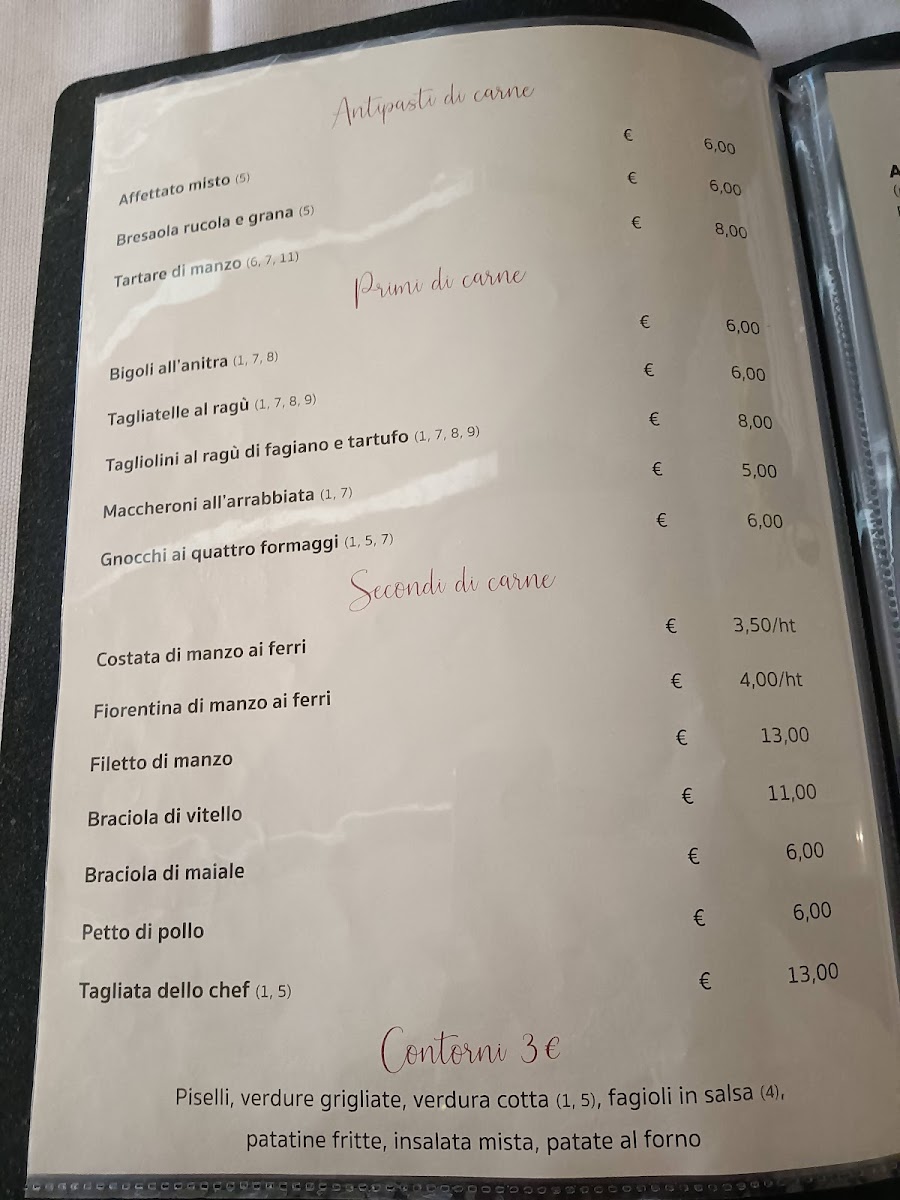 Antipasti di carne
Affettato misto (5) € 6,00
Bresaola rucola e grana (5) € 6,00
Tartare di manzo (6, 7, 11) € 8,00
Primi di carne
Bigoli all'anitra (1, 7, 8) € 6,00
Tagliatelle al ragù (1, 7, 8, 9) € 6,00
Tagliolini al ragù di fagiano e tartufo (1, 7, 8, 9) € 8,00
Maccheroni all'arrabbiata (1, 7) € 5,00
Gnocchi ai quattro formaggi (1, 5, 7) € 6,00
Secondi di carne
Costata di manzo ai ferri € 3,50/ht
Fiorentina di manzo ai ferri € 4,00/ht
Filetto di manzo € 13,00
Braciola di vitello € 11,00
Braciola di maiale € 6,00
Petto di pollo € 6,00
Tagliata dello chef (1, 5) € 13,00
Contorni 3 €
Piselli, verdure grigliate, verdura cotta (1, 5), fagioli in salsa (4),
patatine fritte, insalata mista, patate al forno